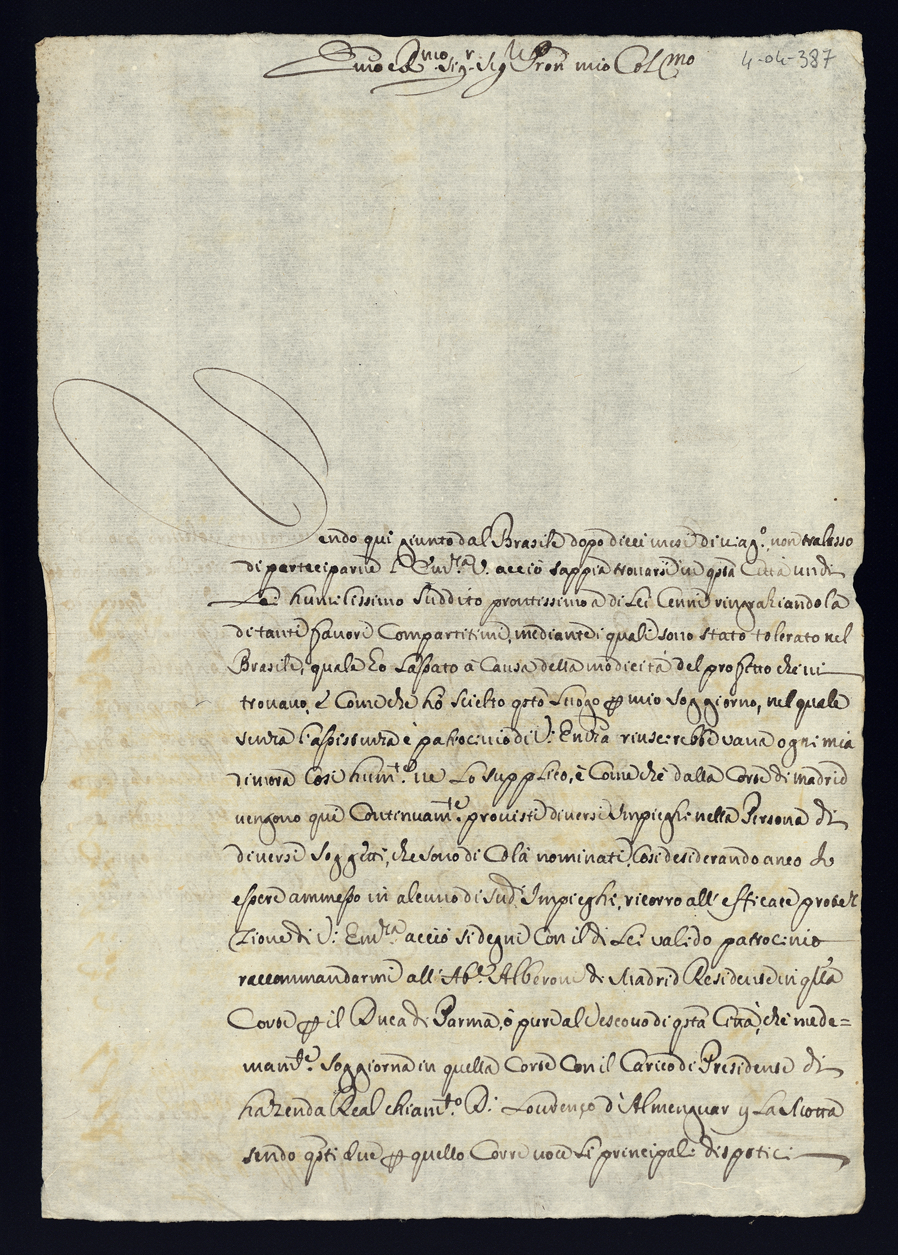 Emo e Rmo Sigr. Sigr Pron mio Colmo
4-04-387
Sendo qui giunto dal Brasile dopo dieci mesi di viagº, non tralasso
di parteciparne l'Emza V. acciò sappia trovarsi in qsta Città un di
Lei humilissimo suddito prontissimo a di Lei Cenni ringraziandola
di tanti favori Compartitimi, mediante di quali sono stato tolerato nel
Brasile, quale ho lassato à Causa della modicità del profitto che ivi
trovavo, è Come che hò scielto qsto luogo p mio soggiorno, nel quale
senza l'assistenza è patrocinio di V: Emza riuscirebbe vana ogni mia
dimora Così humte. ne Lo supplico, è Come che dalla Corte di madrid
vengono quà Continuamte. provisti diversi Impieghi nella Persona di
diversi Soggetti, che sono di Colà nominati, Così desiderando anco Io
essere ammesso in alcuno di sudi Impieghi, ricorro all'efficace protez
zione di V: Emza acciò si degni Con il di Lei valido patrocinio
raccommandarmi all'Abe. Alberoni di Madrid Residente in qlla
Corte p il Duca di Parma, ò pure al Vescovo di qsta Città, che mede=
mamte. soggiorna in quella Corte Con il Carico di Presidente di
hazenda Real chiamto. D. Lourenço d'Almenguar y La Motta
sendo qsti due p quello Corre voce Li principali dispotici